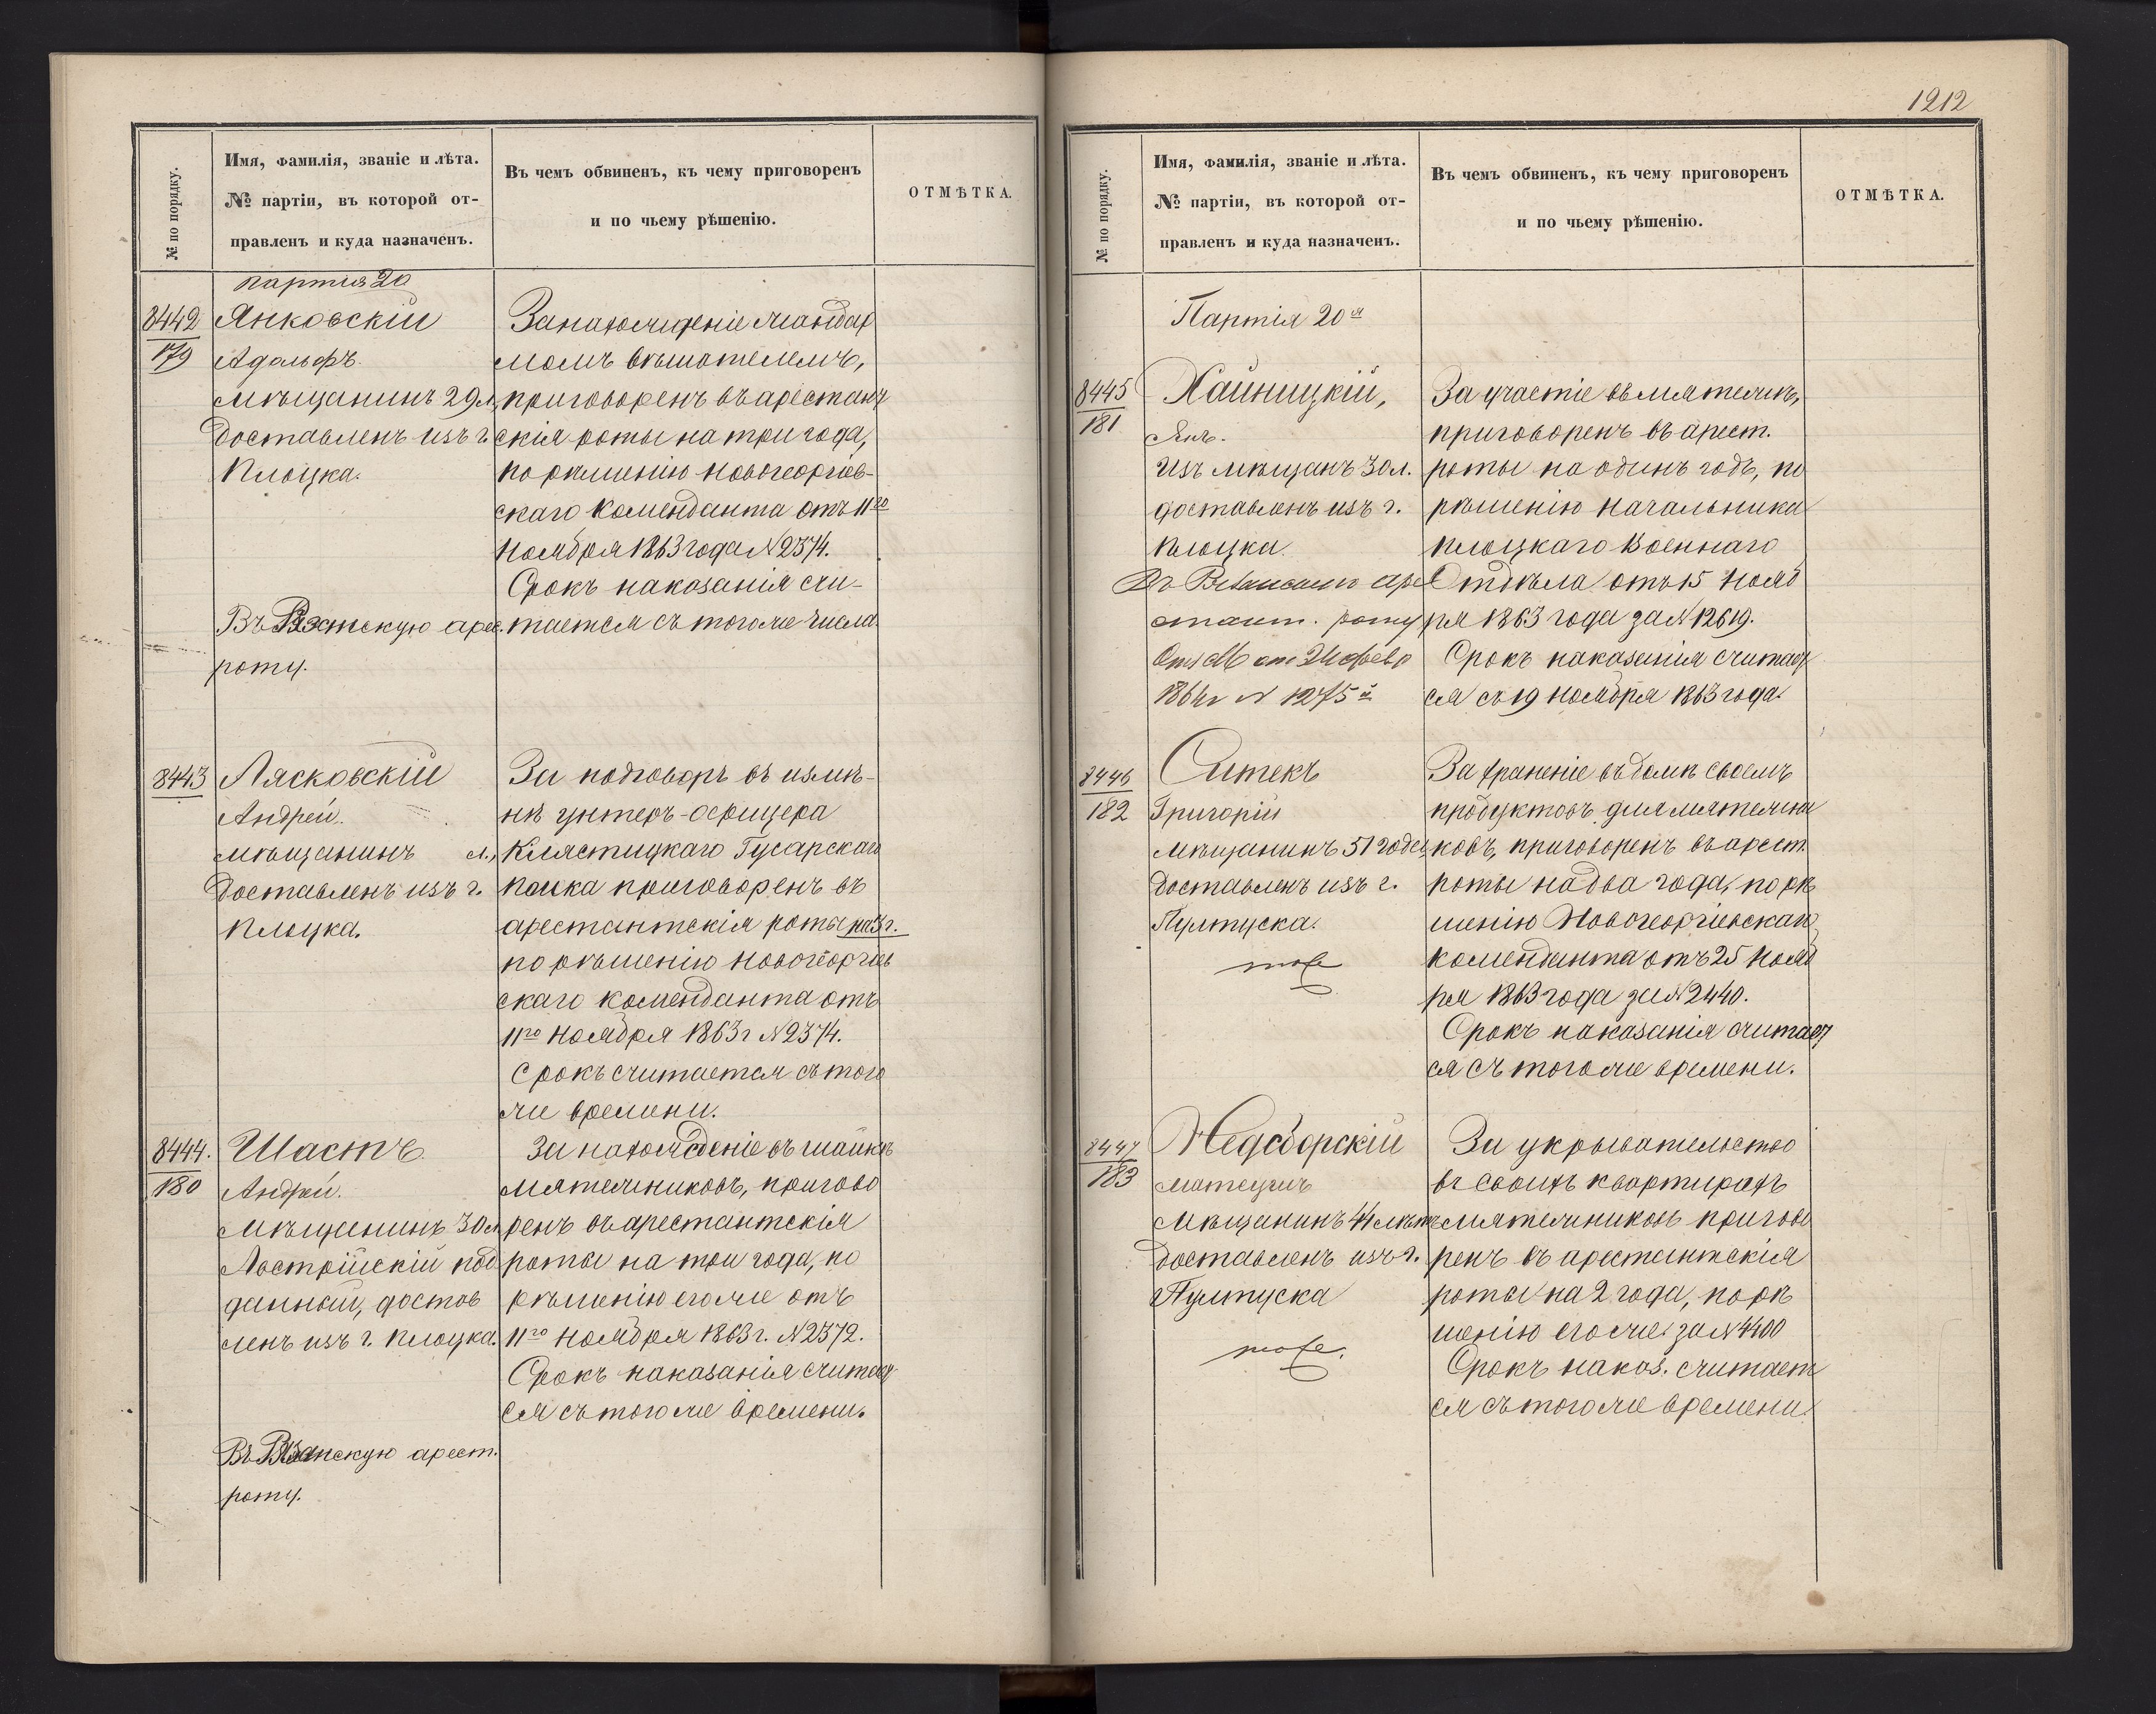 1212
№ по порядку.
Имя, фамилія, званіе и лѣта.
№ партіи, въ которой от-
правленъ и куда назначенъ.
Въ чемъ обвиненъ, къ чему приговоренъ
и по чьему рѣшенію.
ОТМѢТКА.
партія 20
8442
179
Янковскій
Адольфъ.
мѣщанинъ 29 л,
доставленъ изъ г.
Плоцка.
Въ арес.
роту.
За нахожденіе жандар
момъ вѣшателемъ,
приговоренъ въ арестант
скія роты на три года,
по рѣшенію Новогеоргіев-
скаго Коменданта отъ 11го
Ноября 1863 года N 2374.
Срокъ наказанія счи-
тается съ того же числа.
8443
Лясковскій
Андрей.
мѣщанинъ л.,
доставленъ изъ г.
Плоцка.
За подговоръ въ измѣ-
нѣ унтеръ-офицера
Клястицкаго Гусарскаго
полка приговоренъ въ
арестантскія роты на 3 г.
по рѣшенію Новогеоргіев
скаго коменданта отъ
11го Ноября 1863 г N 2374.
Срокъ считается съ того
же времени.
8444.
180
Шастъ
Андрей.
Мѣщанинъ 30 л
Австрійскій под
данный, достав
ленъ изъ г. Плоцка.
Въ арест.
роту.
За нахожденіе въ шайкѣ
мятежниковъ, пригово
ренъ въ арестантскія
роты на три года, по
рѣшенію его же отъ
11го Ноября 1863 г. N 2372.
Срокъ наказанія считает
ся съ того же времени.
№ по порядку.
Имя, фамилія, званіе и лѣта.
№ партіи, въ которой от-
правленъ и куда назначенъ.
Въ чемъ обвиненъ, къ чему приговоренъ
и по чьему рѣшенію.
ОТМѢТКА.
Партія 20я
8445
181
Хайницкій,
Янъ.
Изъ мѣщанъ 30 л.
доставленъ изъ г.
Плоцка.
Въ аре
стант. роту
1864 г N 1275
За участіе въ мятежѣ,
приговоренъ въ арест.
роты на одинъ годъ, по
рѣшенію Начальника
Плоцкаго Военнаго
Отдѣла отъ 15 Нояб
ря 1863 года за N 12619.
Срокъ наказанія считает
ся съ 19 Ноября 1863 года.
8446
182
Ситекъ
Григорій
мѣщанинъ 51 года,
доставленъ изъ г.
Пултуска.
тоже
За храненіе въ домѣ своемъ
продуктовъ для мятежни
ковъ, приговоренъ въ арест.
роты на два года, по рѣ
шенію Новогеоргіевскаго
коменданта отъ 25 Нояб
ря 1863 года за N 2440.
Срокъ наказанія считает
ся съ того же времени.
8447
183
Недзборскій
Матеушъ
Мѣщанинъ 44 лѣтъ
доставленъ изъ г.
Пултуска
тоже.
За укрывательство
въ своихъ квартирахъ
мятежниковъ пригово
ренъ въ арестантскія
роты на 2 года, по рѣ
шенію его же за N 4400
Срокъ наказ. считает
ся съ того же времени.